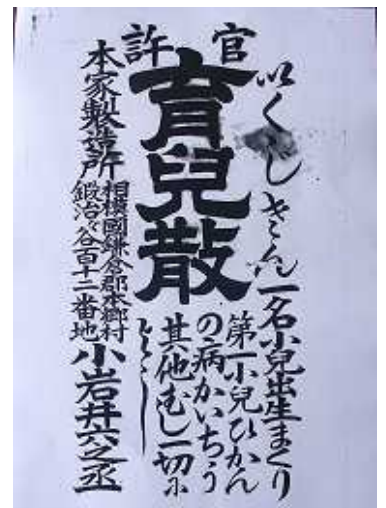 官許
いくじさん一名小兒出生まくり
育兒散
第一小兒ひかん
の病かいちう
其他むし一切ニ
よろし
本家製造所
相模國鎌倉郡本郷村
鍛冶々谷百十二番地
小岩井六之丞